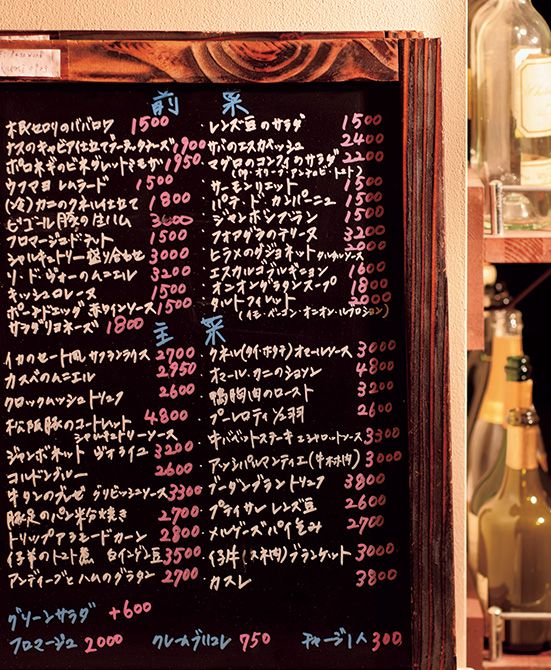 前菜
根セロリのババロワ 1500
ナスのキャビア仕立てブータックチーズ 1900
ポロネギのビネグレットミモザ 1950
ウフマヨ レムラード 1500
カニのクネル仕立て 1800
ビゴール豚の生ハム 3000
フロマージュドテット 1500
シャルキュトリー盛り合わせ 3000
リ・ド・ヴォーのムニエル 3200
キッシュロレーヌ 1500
ポーチドエッグ 赤ワインソース 1500
サラダリヨネーズ 1800
・レンズ豆のサラダ 1500
・サバのエスカベッシュ 2400
・マグロのコンフィのサラダ 2200
・サーモンリエット 1500
・パテ・ド・カンパーニュ 1500
・ジャンボンブラン 1500
・フォアグラのテリーヌ 3200
・ヒラメのグジョネット タルタルソース 2000
・エスカルゴブルギニョン 1600
・オニオングラタンスープ 1800
・タルトフィレット 2000
(イモ・ベーコン・オニオン・ルブロション)
主菜
イカのセート風 サフランライス 2700
カスベのムニエル 2950
クロックムッシュトリュフ 2600
松阪豚のコートレット 4800
シャルキュトリーソース
ジャンボネット ヴォライユ 3200
コルドンブルー 2600
牛タンのブレゼ グリビッシュソース 3300
豚足のパン粉付焼き 2700
トリップアラモードカーン 2800
仔羊のトマト煮 白インゲン豆 3500
アンディーブとハムのグラタン 2700
・クネル(タイ・ホタテ)オマールソース 3000
・オマール・カニのショソン 4800
・鴨胸肉のロースト 3200
・プーレロティ ½羽 2600
・牛バベットステーキ エシャロットソース 3300
・アッシパルマンティエ(牛ホホ肉) 3000
・ブーダンブラントリュフ 3800
・プティサレ レンズ豆 2600
・メルゲーズパイ包み 2700
・仔牛(スネ肉)ブランケット 3000
・カスレ 3800
グリーンサラダ +600
フロマージュ 2000 クレームブリュレ 750 チャージ1人 300